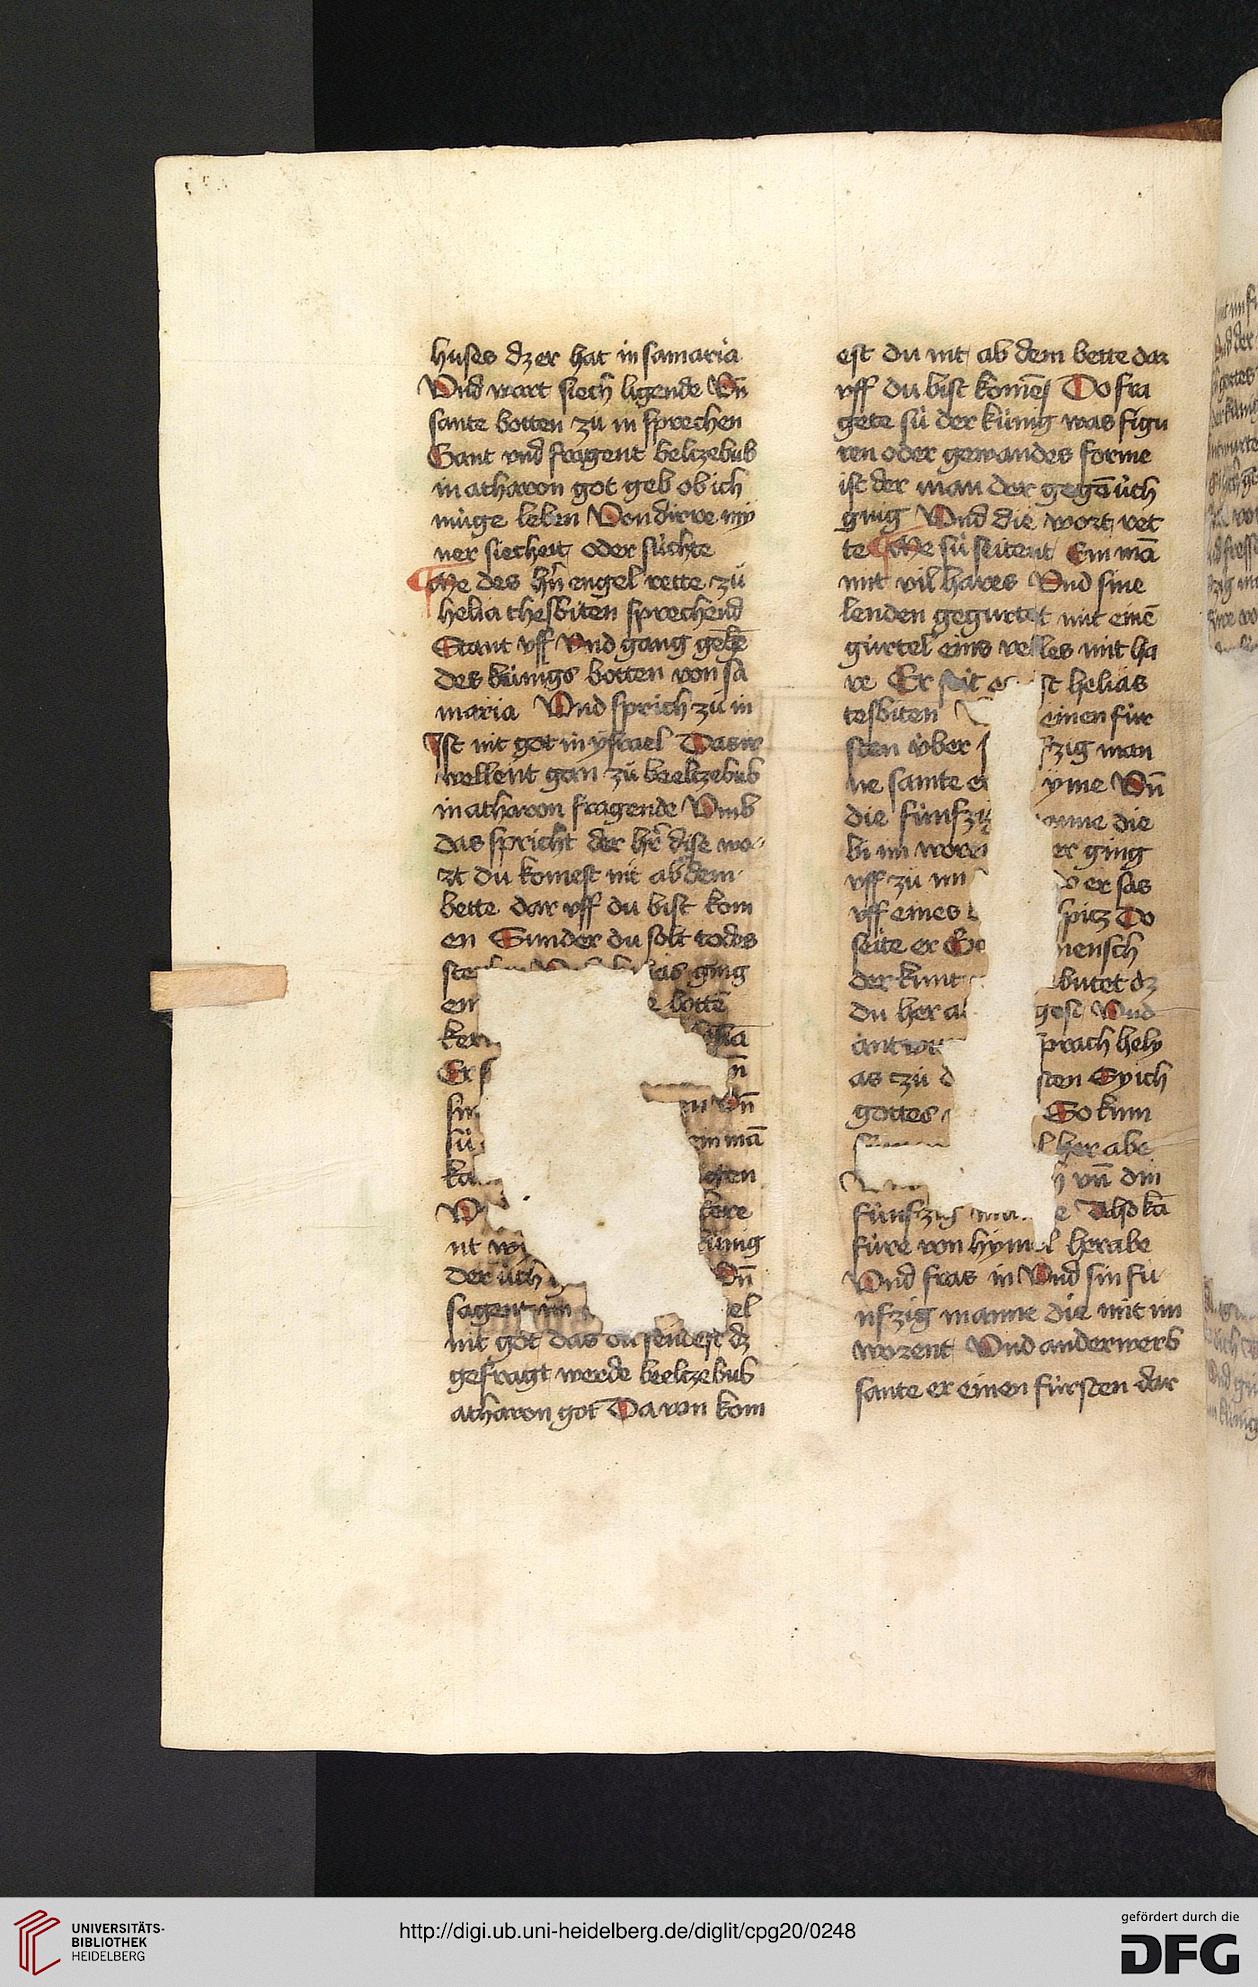 huses dz er hat in samaria
Vnd wart siech ligende Vn̄
sante botten zu in sprechen
Gant vnd fragent beltzebub
in atharon got geb ob ich
müge leben Von dirre my
ner siecheit oder süchte
Me des hr̄n engel rette zü
helia thesbiten sprechend
Stant vff vnd gang gegē
des künigs botten von sa
maria Vnd sprich zu in
Ist nit got in ysrael Das ir
wellent gan zü beeltzebub
in atharon fragende Vmb
das spricht der hr̄e dise wo
rt du komest nit ab dem
bette dar vff du bist kom
en Sunder du solt todes
ste ias ging
en e bottē
ker
Er s n̄
sin in Vn̄
sü ein mā
ka gten
W kere
nt wi künig
der üch Vn̄
sagent im el
nit got das du sendest dz
gefragt werde beeltzebub
atharon got Da von kom
est du nit ab dem bette dar
vff du bist komē Do fra
gete sü der künig was figu
ren oder gewandes forme
ist der man der gegē üch
gnig Vnd die wort ret
te Me sü seitent Ein mā
mit vil hares Vnd sine
lenden gegurtet mit einē
gürtel eins velles mit ha
re Er seit e st helias
tesbiten einen für
sten über fzig man
ne sante e yme Vn̄
die fünfzig anne die
bi im woren er ging
vff zü im do er sas
vff eines spitz Do
seite er mensch
der kunt butet dz
du her a gest Vnd
antwu sprach hely
as tzü d sten Sy ich
gottes So kum
l her abe
h vn̄ din
fünfzig e Also kā
füre von hymel herabe
Vnd fras in Vnd sin fu
nfzig manne die mit im
worent Vnd anderwerb
sante er einen fürsten dar
UNIVERSITÄTS-
BIBLIOTHEK
HEIDELBERG
http://digi.ub.uni-heidelberg.de/diglit/cpg20/0248
gefördert durch die
DFG